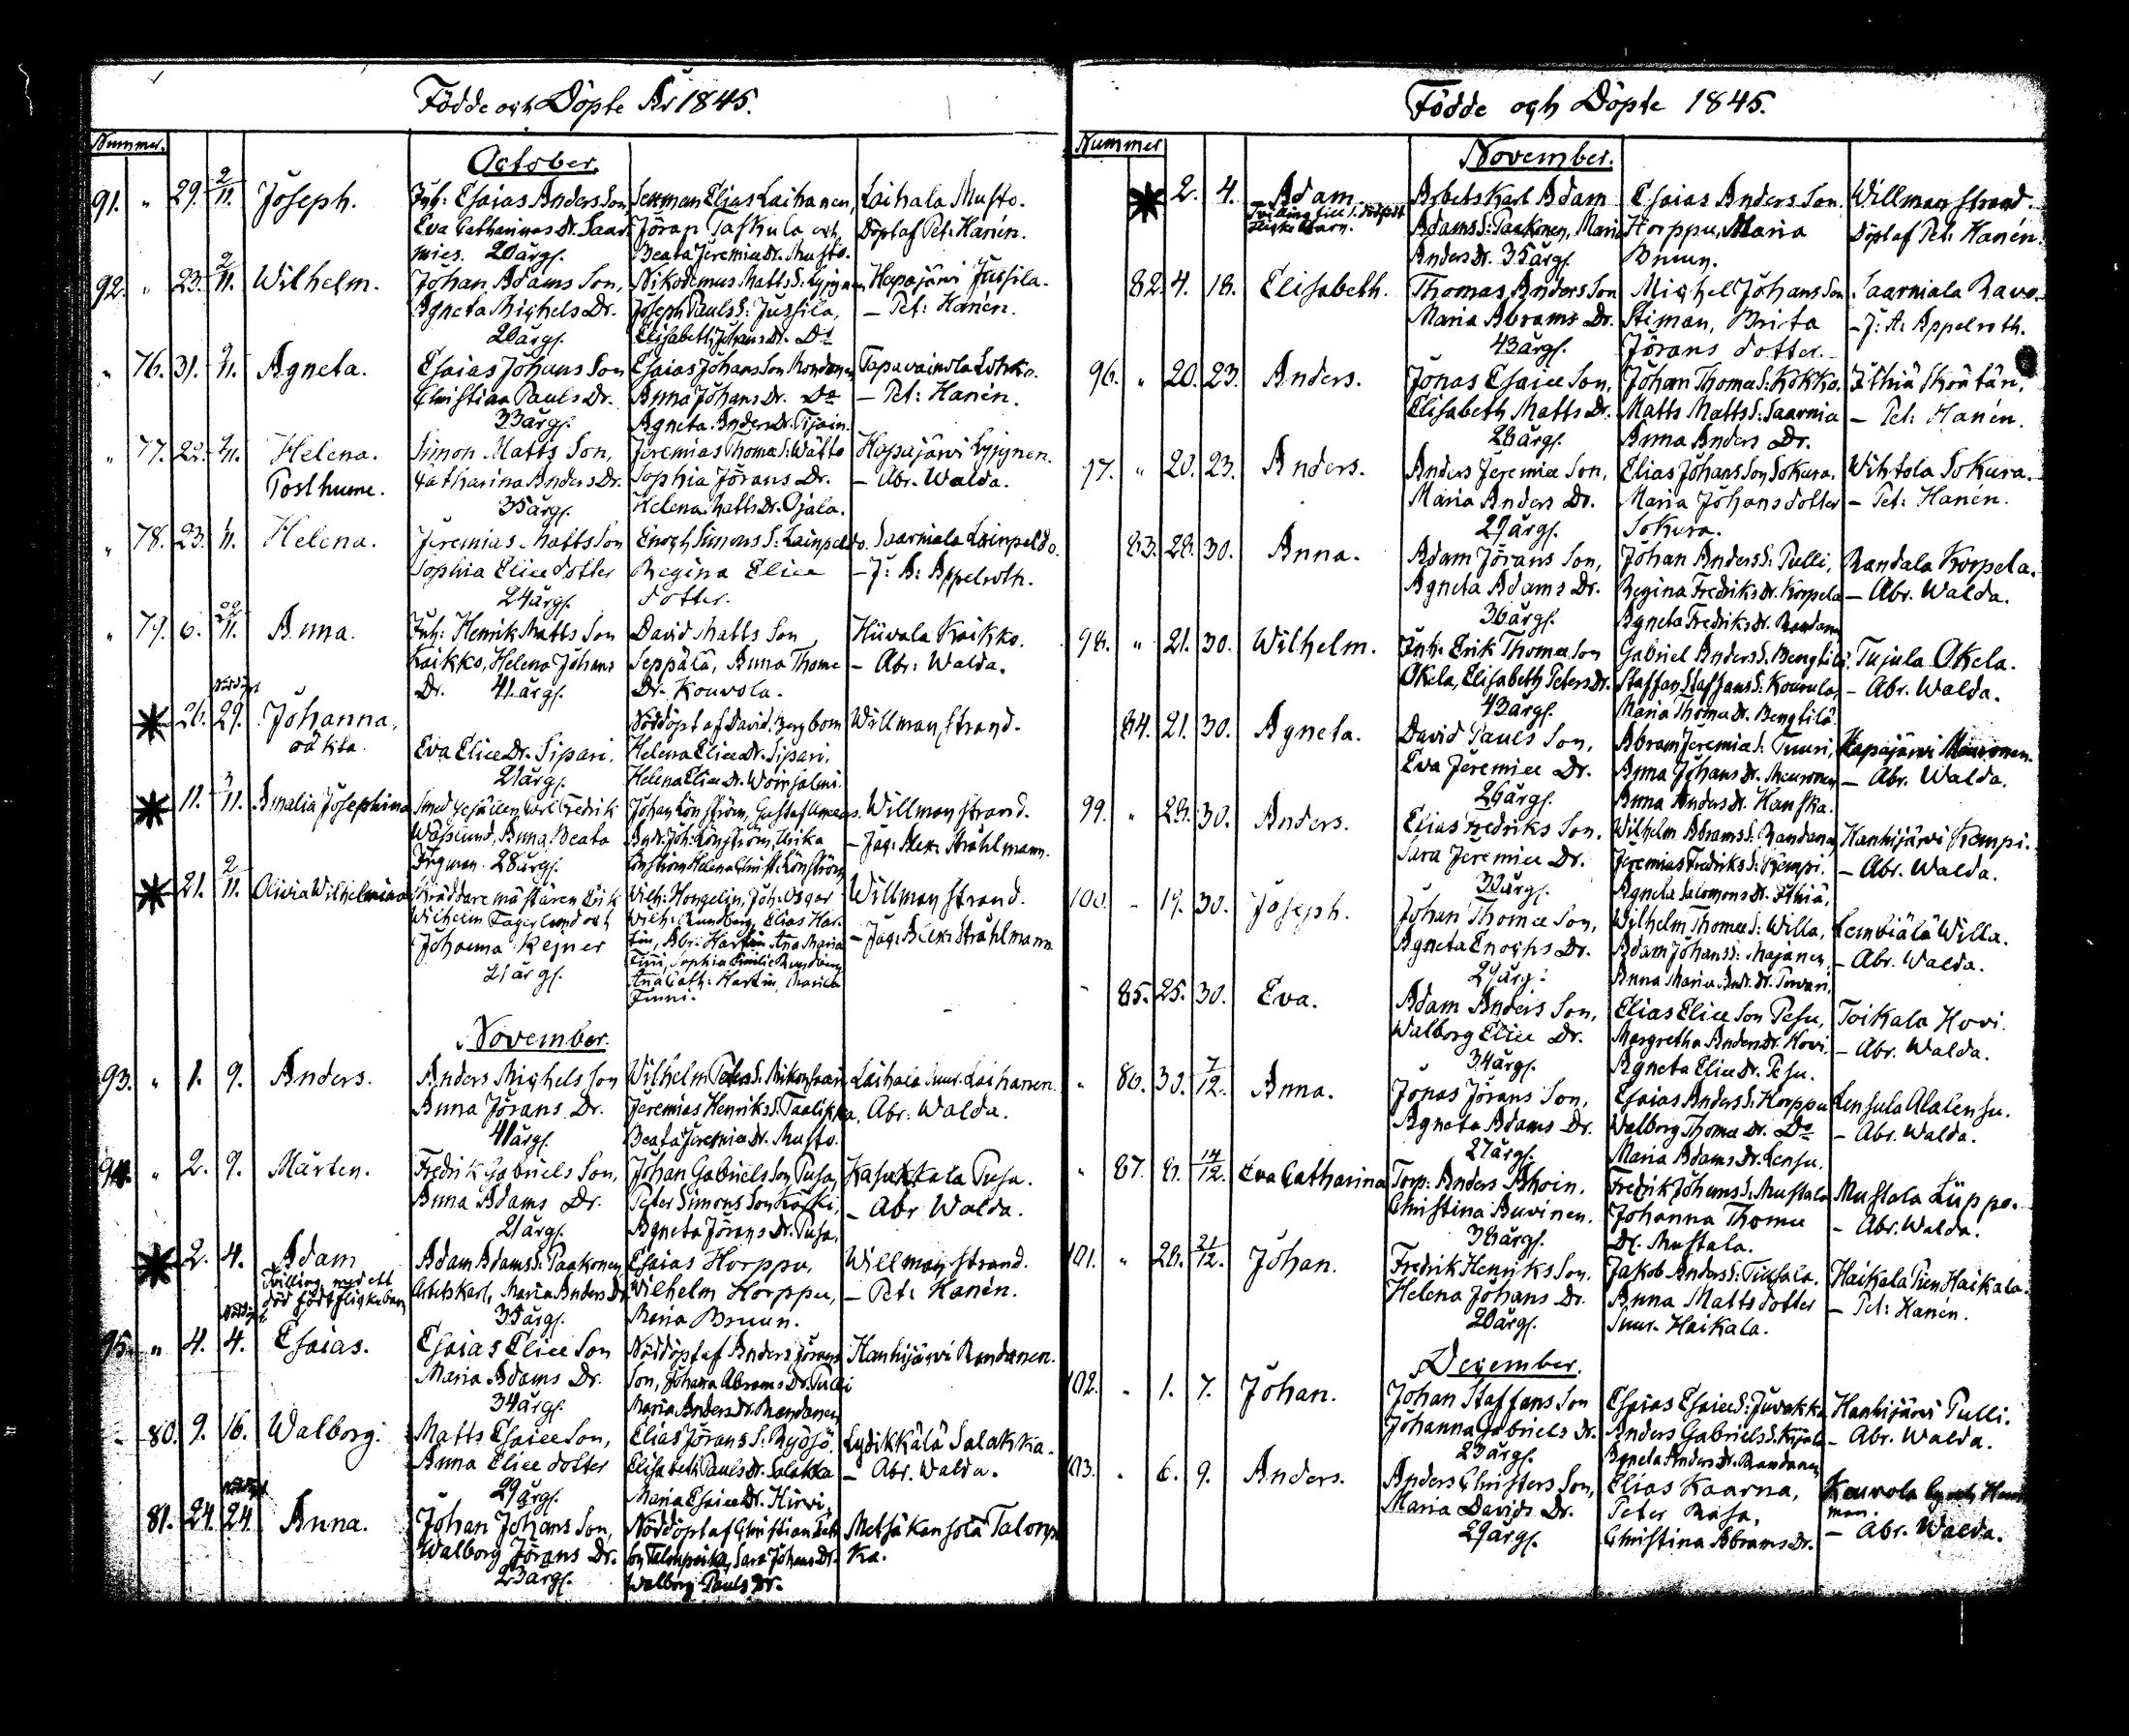 Födde och Döpte År 1845.
Nummer.
October.
91. " 29. 2/11. Joseph. Inh: Esaias Anders Son, Sexman Elias Laihanen, Laihala Musto.
Eva Catharina Dr. Saar- Jöran Taskula och Döpt af Pet: Hanén.
mies. 20 årg. Beata Jeremiæ Dr. Musto.
92. " 23. 2/11. Wilhelm. Johan Adams Son, Nikodemus Matts S: Hapajärvi Jussila.
Agneta Michels Dr. Joseph Pauls S: Jussila, – Pet: Hanén.
20 årg. Elisabeth Johans Dr. Do
" 76. 31. 2/11. Agneta. Esaias Johans Son Esaias Johans Son Rondanen Tapavainola Lohko.
Christina Pauls Dr. Anna Johans Dr. Do – Pet: Hanén.
33 årg. Agneta Anders Dr.
" 77. 22. 2/11. Helena. Simon Matts Son, Jeremias Thomæ S: Wätto Hapajärvi Lyijynen.
Posthume. Catharina Anders Dr. Sophia Jörans Dr. – Abr. Walda.
35 årg. Helena Matts Dr. Ojala.
" 78. 23. Helena. Jeremias Matts Son Enoch Simons S: Lainpeldo. Saarniala Lainpeldo.
Sophia Eliæ dotter Regina Eliæ – J: A: Appelroth.
24 årg. dotter.
" 79. 6. Anna. Inh: Henrik Matts Son David Matts Son Hüvala Kaikko.
Kaikko, Helena Johans Seppälä, Anna Thomæ – Abr: Walda.
Dr. 41 årg. Dr. Kouvola.
Nöddöpt
26. 29. Johanna, Nöddöpt af David Bergbom Willmanstrand.
oäkta. Eva Eliæ Dr. Sipari. Helena Eliæ Dr. Sipari,
21 årg. Helena Eliæ Dr. Woinsalmi.
11. 3/11. Amalia Josephina Smed Gesällen Carl Fredrik Johan Lönström, Gustaf Willmanstrand.
Waslund, Anna Beata And: Joh: Lönström, Ulrika – Jac: Alex: Stråhlmann.
28 årg. Lönström Helena Christ: Lönström
21. 2/11. Olivia Wilhelmina Skräddare mästaren Erik Wilh: Hongelin, Joh: Oscar Willmanstrand.
Wilhelm Fagerlund och Wilh: Rundberg, Elias Har- – Jac: Alex: Stråhlmann
Johanna Rejner tin, Abr: Hartin Ana Maria
21 årg. Finni, Sophia Emilie Rundberg
Ana Cath: Hartin, Maria
Finni.
November.
93. " 1. 9. Anders. Anders Michels Son Wilhelm Peters S: Mikonsaari Laihala Suur-Laihanen.
Anna Jörans Dr. Jeremias Henriks S: Taalikka, Abr: Walda.
41 årg. Beata Jeremiæ Dr. Musto.
94. " 2. 9. Mårten. Fredrik Gabriels Son, Johan Gabriels Son Pusa, Kasukkala Pusa.
Anna Adams Dr. Peter Simons Son Koski, – Abr Walda.
21 årg. Agneta Jörans Dr. Pusa,
2. 4. Adam Adam Adams S: Paakonen Esaias Horppu, Willmanstrand.
Tvilling med ett Arbetskarl, Maria Anders Dr. Wilhelm Horppu, – Pet: Hanén.
död född flickebarn 35 årg. Maria Bruun.
Nöddöpt
95. " 4. 4. Esaias. Esaias Eliæ Son Nöddöpt af Anders Jörans Hanhijärvi Randanen.
Maria Adams Dr. Son, Johana Abrams Dr. Tulli
34 årg. Maria Anders Dr. Randanen
80. 9. 16. Walborg. Matts Esaiæ Son, Elias Jörans S: Ryösö, Lydikkälä Salakka.
Anna Eliæ dotter Elisabeth Pauls Dr. Salakka – Abr. Walda.
29 årg. Maria Esaiæ Dr. Hirvi,
Nöddöpt
81. 24. 24. Anna. Johan Johans Son, Nöddöpt af Christian Metsäkansola Talonpo
Walborg Jörans Dr. Son Talonpoika, Sara Johans Dr. ka.
23 årg. Walborg Pauls Dr.
Födde och Döpte 1845.
Nummer
November.
2. 4. Adam Arbetskarl Adam Esaias Anders Son Willmanstrand.
Tvilling till Adams S: Paakonen, Maria Horppu, Maria Döpt af Pet: Hanén.
flickebarn. Anders Dr. 35 årg. Bruun.
82. 4. 18. Elisabeth. Thomas Anders Son Michel Johans Son Saarniala Ravo.
Maria Abrams Dr. Stiman, Brita – J: A: Appelroth.
43 årg. Jörans dotter.
96. " 20. 23. Anders. Jonas Esaiæ Son, Johan Thomæ S: Kokko, Ithiä Skrätän,
Elisabeth Matts Dr. Matts Matts S: Saarnia – Pet: Hanén.
26 årg. Anna Anders Dr.
97. " 20. 23. Anders. Anders Jeremiæ Son, Elias Johans Son Sokura, Wihtola Sokura.
Maria Anders Dr. Maria Johans dotter – Pet: Hanén.
29 årg. Sokura.
83. 28. 30. Anna. Adam Jörans Son, Johan Anders S: Pulli, Randala Korpela.
Agneta Adams Dr. Regina Fredriks Dr. Korpela – Abr. Walda.
36 årg. Agneta Fredriks Dr. Randanen
98. " 21. 30. Wilhelm. Inh: Erik Thomæ Son Gabriel Anders S: Bengtilä, Tujula Okela.
Okela, Elisabeth Peters Dr. Staffan Staffans S: Kourula, – Abr. Walda.
43 årg. Maria Thomæ Dr. Bengtilä.
84. 21. 30. Agneta. David Pauls Son, Abram Jeremiæ S: Tuuri, Hapajärvi Meuronen.
Eva Jeremiæ Dr. Anna Johans Dr. Meuronen – Abr. Walda.
26 årg. Anna Anders Dr. Hanska.
99. " 28. 30. Anders. Elias Fredriks Son, Wilhelm Abrams S: Randanen Hanhijärvi Kempi.
Sara Jeremiæ Dr. Jeremias Fredriks S: Kempi. – Abr. Walda.
30 årg. Agneta Salomons Dr. Ithiä,
100. " 19. 30. Joseph. Johan Thomæ Son, Wilhelm Thomæ S: Willa, Lembiälä Willa.
Agneta Enochs Dr. Adam Johans S: Majanen, – Abr. Walda.
29 årg. Anna Maria And. Dr.
85. 25. 30. Eva. Adam Anders Son, Elias Eliæ Son Pesu, Toikala Hovi.
Walborg Eliæ Dr. Margretha Anders Dr. Hovi, – Abr. Walda.
34 årg. Agneta Eliæ Dr. Pesu.
" 86. 30. 7/12. Anna. Jonas Jörans Son, Esaias Anders S: Horppu Lensula Alalensu.
Agneta Adams Dr. Walborg Thomæ Dr. Do – Abr. Walda.
27 årg. Maria Adams Dr. Lensu.
" 87. 8. 14/12. Eva Catharina Torp: Anders Ahoin. Fredrik Johans S: Mustala Mustala Lüppo.
Christina Auvinen. Johanna Thomæ – Abr. Walda.
38 årg. Dr. Mustala.
101. " 28. 21/12. Johan. Fredrik Henriks Son, Jakob Anders S: Tiihala. Haikala Pien Haikala.
Helena Johans Dr. Anna Matts dotter – Pet: Hanén.
20 årg. Suur-Haikala.
December.
102. " 1. 7. Johan. Johan Staffans Son Esaias Esaiæ S: Juvakka Hanhijärvi Pulli.
Johanna Gabriels Dr. Anders Gabriels S. – Abr. Walda.
23 årg. Agneta Anders Dr. Randanen
103. " 6. 9. Anders. Anders Christers Son, Elias Kaarna, Kouvola
Maria Davids Dr. Peter Rasa, man.
29 årg. Christina Abrams Dr. – Abr. Walda.